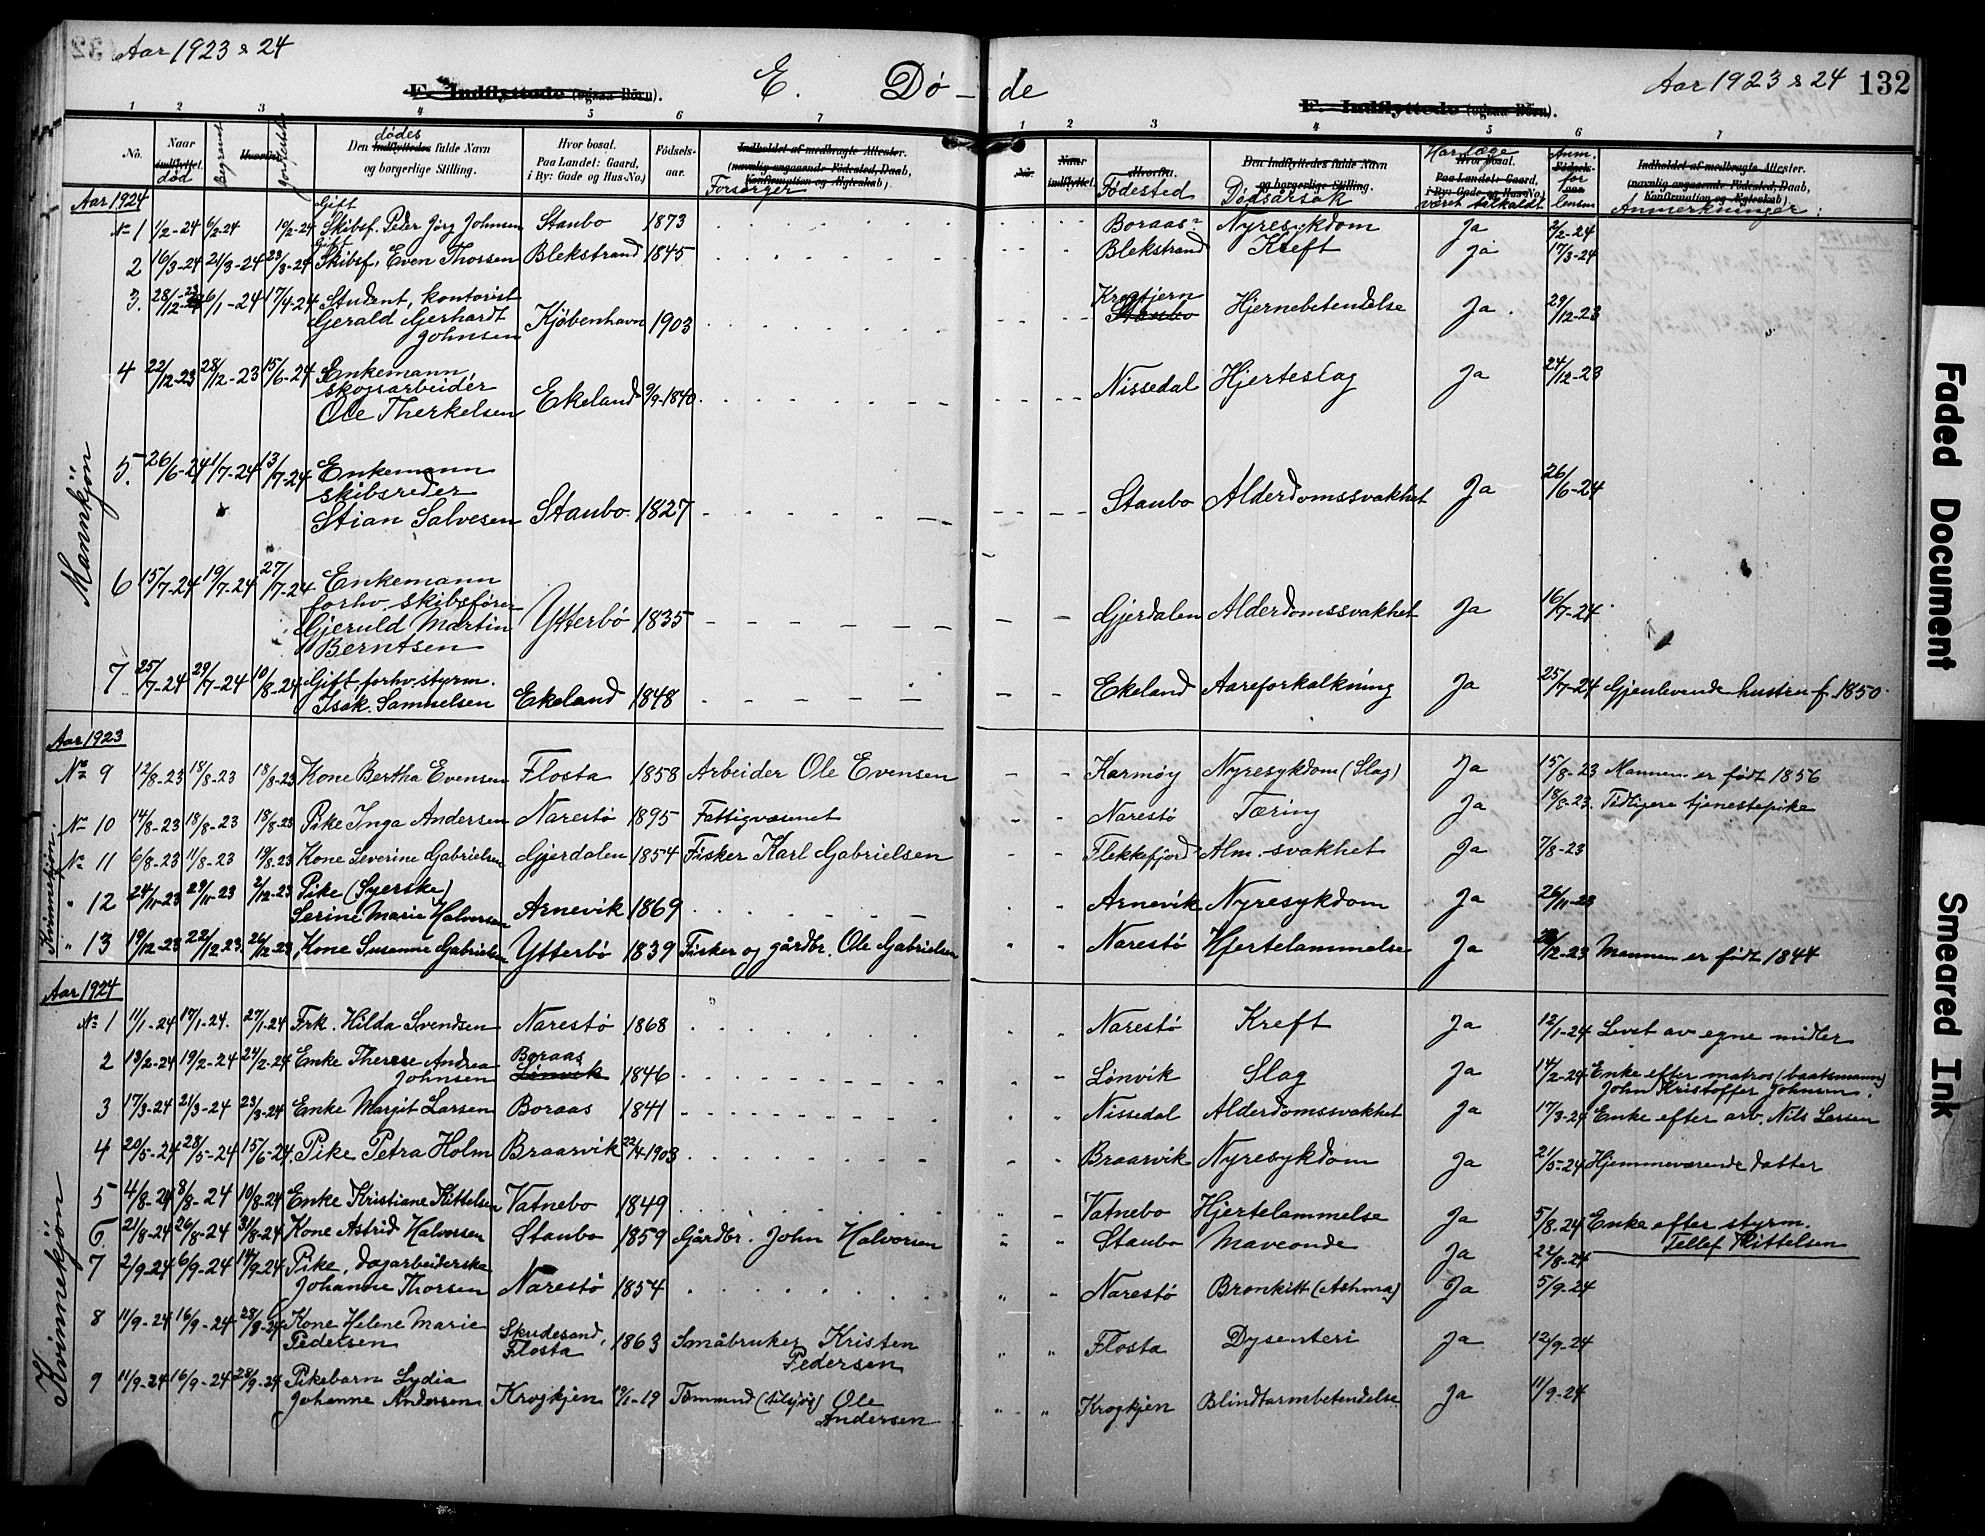 Aar 1923 & 24
E. Dø-de
Aar 1923 & 24 132
F. Indflyttede (ogsaa Börn).
F. Indflyttede (ogsaa Börn).
1 2 3 4 5 6 7
1 2 3 4 5 6 7
No. Naar indflyttet. død Begravet Hvorfra Jordfestelse Den Indflyttedes dødes fulde Navn og borgerlige Stilling. Hvor bosat. Paa Landet: Gaard, i By: Gade og Hus-No.) Födselsaar. Indholdet af medbragte Attester. (navnlig angaaende Födested, Daab, Konfirmation og Ægteskab). Forsørger
No. Naar indflyttet. Hvorfra. Fødested Den Indflyttedes fulde Navn og borgerlige Stilling. Dødsårsak Hvor bosat. Paa Landet: Gaard, i By: Gade og Hus-No.) Har læge været tilkaldt Födselsaar Anm. for lensm Indholdet af medbragte Attester. (navnlig angaaende Födested, Daab, Konfirmation og Ægteskab). Anmerkninger:
Aar 1924
Mannkjøn
No 1 1/2-24 6/2-24 10/2-24 Gift Skibsf. Peder Jörg Johnsen Staubo 1873 Boraas Nyresykdom Ja 2/2-24
2 16/3-24 21/3-24 23/3-24 Gift Skibsf. Even Thorsen Blekstrand 1845 Blekstrand Kreft Ja 17/3-24
3. 28/12-23 6/1-24 17/4-24 Student, kontorist Gerald Gerhardt Johnsen Kjøbenhavn 1903 Krogtjern Staubo Hjernebetendelse Ja. 29/12-23
4 22/12-23 28/12-23 15/6-24 Enkemann, skogsarbeider Ole Therkelsen Ekeland 9/9-1840 Nissedal Hjerteslag Ja 24/12-23
5. 26/6-24 1/7-24 13/7-24 Enkemann skibsreder Stian Salvesen Staubo. 1827 Staubo Alderdomssvakhet Ja 26/6-24
6 15/7-24 19/7-24 27/7-24 Enkemann forhv. skibsfører Gjeruld Martin Berntsen Ytterbö 1835 Gjerdalen Alderdomssvakhet Ja 16/7-24
7 25/7-24 29/7-24 10/8-24 Gift forhv. styrm. Isak Samuelsen Ekeland 1848 Ekeland Aareforkalkning Ja 25/7-24 Gjenlevende hustru f. 1850
Aar 1923
Kvinnekjön.
No 9 12/8-23 18/8-23 18/8-23 Kone Bertha Evensen Flosta 1858 Arbeider Ole Evensen Karmøy Nyresykdom (Slag) Ja 15/8-23 Mannen er født 1856
No 10 14/8-23 18/8-23 18/8-23 Pike Inga Andersen Narestö 1895 Fattigvæsenet Narestö Tæring Ja 18/8-23. Tidligere tjenestepike
No 11 6/8-23 11/8-23 19/8-23 Kone Severine Gabrielsen Gjerdalen 1854 Fisker Karl Gabrielsen Flekkefjord Alm. svakhet Ja 7/8-23
" 12 24/11-23 29/11-23 2/12-23 Pike (Syerske) Serine Marie Halvorsen Arnevik 1869 Arnevik Nyresykdom Ja 26/11-23
" 13 19/12-23 22/12-23. 26/12-23 Kone Susanne Gabrielsen Ytterbö 1839 Fisker og gårdbr. Ole Gabrielsen Narestö Hjertelammelse Ja 20/12-23 Mannen er født 1844
Aar 1924
Kvinnekjøn
No 1 11/1-24 17/1-24. 27/1-24 Frk. Hilda Svendsen Narestö 1868 Narestö Kreft Ja 12/1-24 Levet av egne midler
2 13/2-24 19/2-24 24/2-24 Enke Therese Andrea Johnsen Boraas Lönvik 1846 Lönvik Slag Ja 14/2-24 Enke efter matros (baatsmann) John Kristoffer Johnsen.
3 17/3-24 21/3-24 23/3-24 Enke Margit Larsen Boraas 1841 Nissedal Alderdomssvakhet Ja 17/3-24 Enke efter arb. Nils Larsen
4 20/5-24 28/5-24 15/6-24. Pike Petra Holm Braarvik 22/4 1903 Braarvik Nyresykdom Ja 21/5-24 Hjemmeværende datter
5 4/8-24 8/8-24 10/8-24 Enke Kristiane Kittelsen Vatnebo 1849 Vatnebo Hjertelammelse Ja 5/8-24 Enke efter styrm. Tellef Kittelsen
6 21/8-24 26/8-24 31/8-24 Kone Astrid Halvorsen Staubo 1859 Gårdbr. John Halvorsen Staubo Maveonde Ja 22/8-24
7 2/9-24 6/9-24 14/9-24 Pike, dagarbeiderske Johanne Thorsen Narestö 1854 Narestö Bronkitt (Asthma) Ja 5/9-24
8 11/9-24 16/9-24 28/9-24 Kone Helene Marie Pedersen Skudesand, Flosta 1863 Småbruker Kristen Pedersen Flosta Dysenteri Ja 12/9-24
9 11/9-24 16/9-24 28/9-24 Pikebarn Lydia Johanne Andersen Krogkjen 19/1-19 Tømmend (tilsjøs) Ole Andersen Krogkjen Blindtarmbetendelse Ja 11/9-24
Faded Document
Smeared Ink